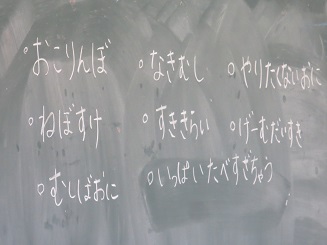 ○おこりんぼ ○なきむし ○やりたくないおに
○ねぼすけ ○すききらい ○げーむだいすき
○むしばおに ○いっぱいたべすぎちゃう